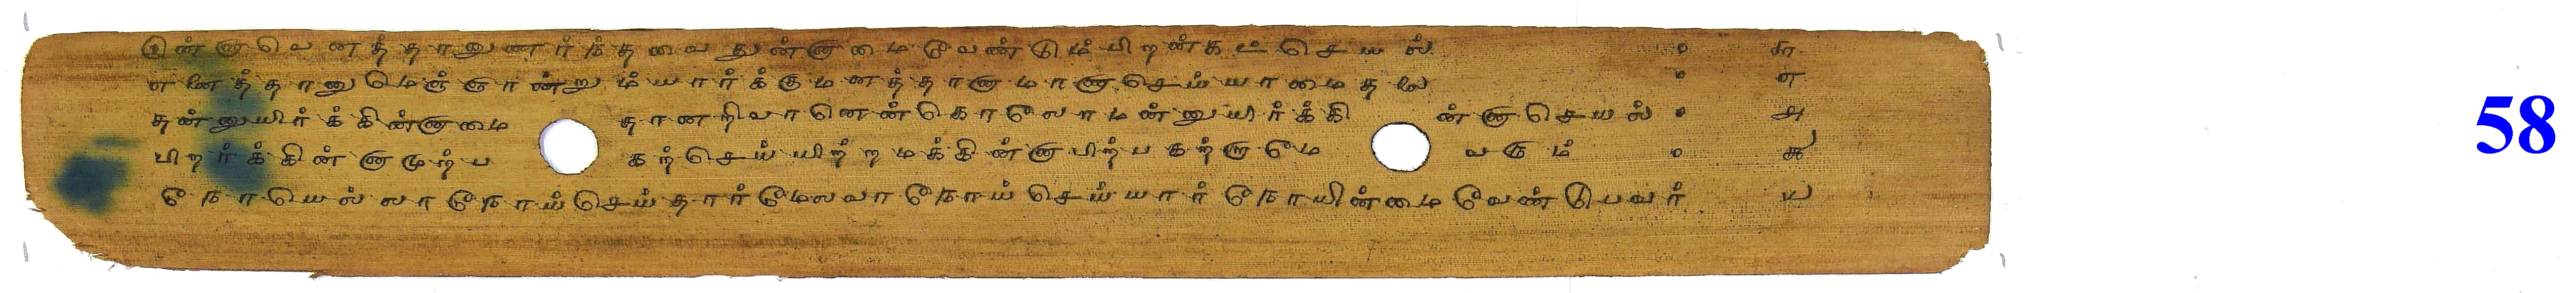 இன்னாவெனத்தானுணர்ந்தவை துன்னாமை வேண்டும் பிறன்கட் செயல் ० ௬
எனைத்தானுமெஞ்ஞான்றும்யார்க்குமனத்தானாமாணாசெய்யாமைதலை ० ௭
தன்னுயிர்க்கின்னாமை தானறிவானென்கொலோமன்னுயிர்க்கி ன்னாசெயல் ० ௮
பிறர்க்கின்னாமுற்ப கற்செய்யிற்றமக்கின்னாபிற்பகற்றாமே வரும் ० ௯
நோயெல்லாநோய்செய்தார்மேலவாநோய்செய்யார் நோயின்மைவேண்டுபவர் ௰
58